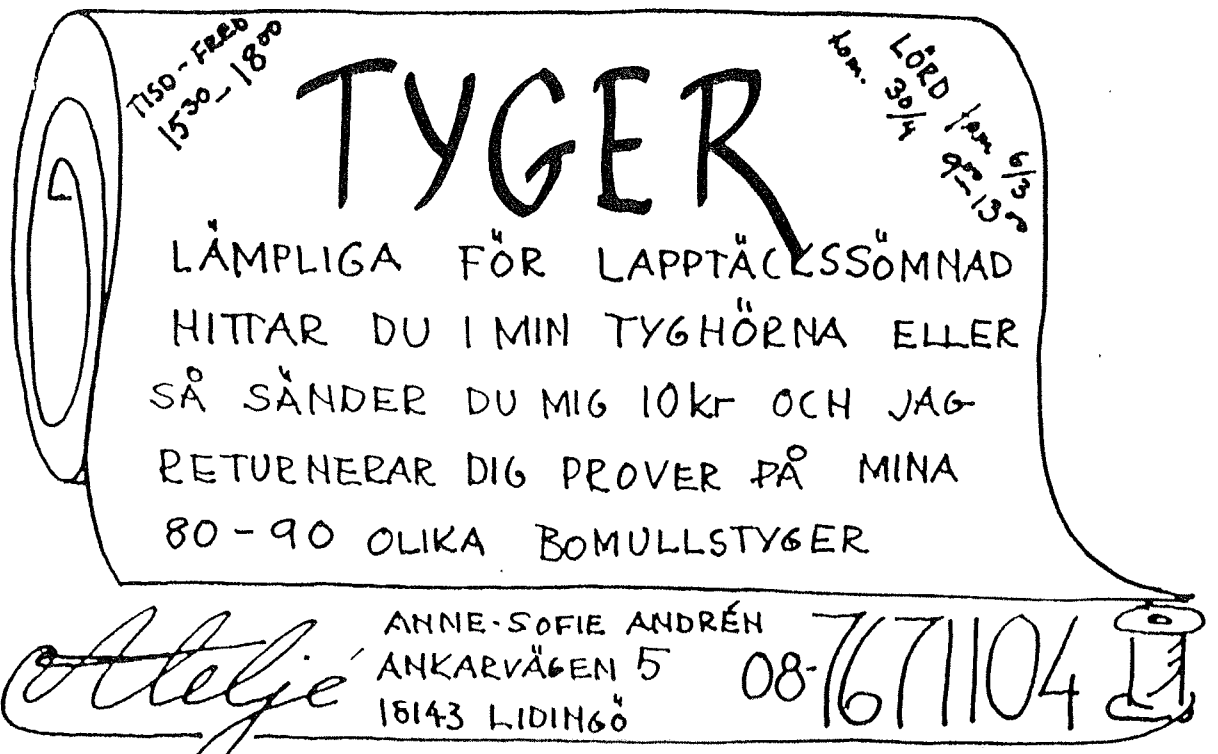 TISD-FRED
15³⁰-18⁰⁰
LÖRD fom 6/3
tom. 30/4
9⁰⁰-13⁰⁰
TYGER
LÄMPLIGA FÖR LAPPTÄCKSSÖMNAD
HITTAR DU I MIN TYGHÖRNA ELLER
SÅ SÄNDER DU MIG 10kr OCH JAG
RETURNERAR DIG PROVER PÅ MINA
80-90 OLIKA BOMULLSTYGER
Ateljé
ANNE-SOFIE ANDRÉN
ANKARVÄGEN 5
18143 LIDINGÖ
08-7671104